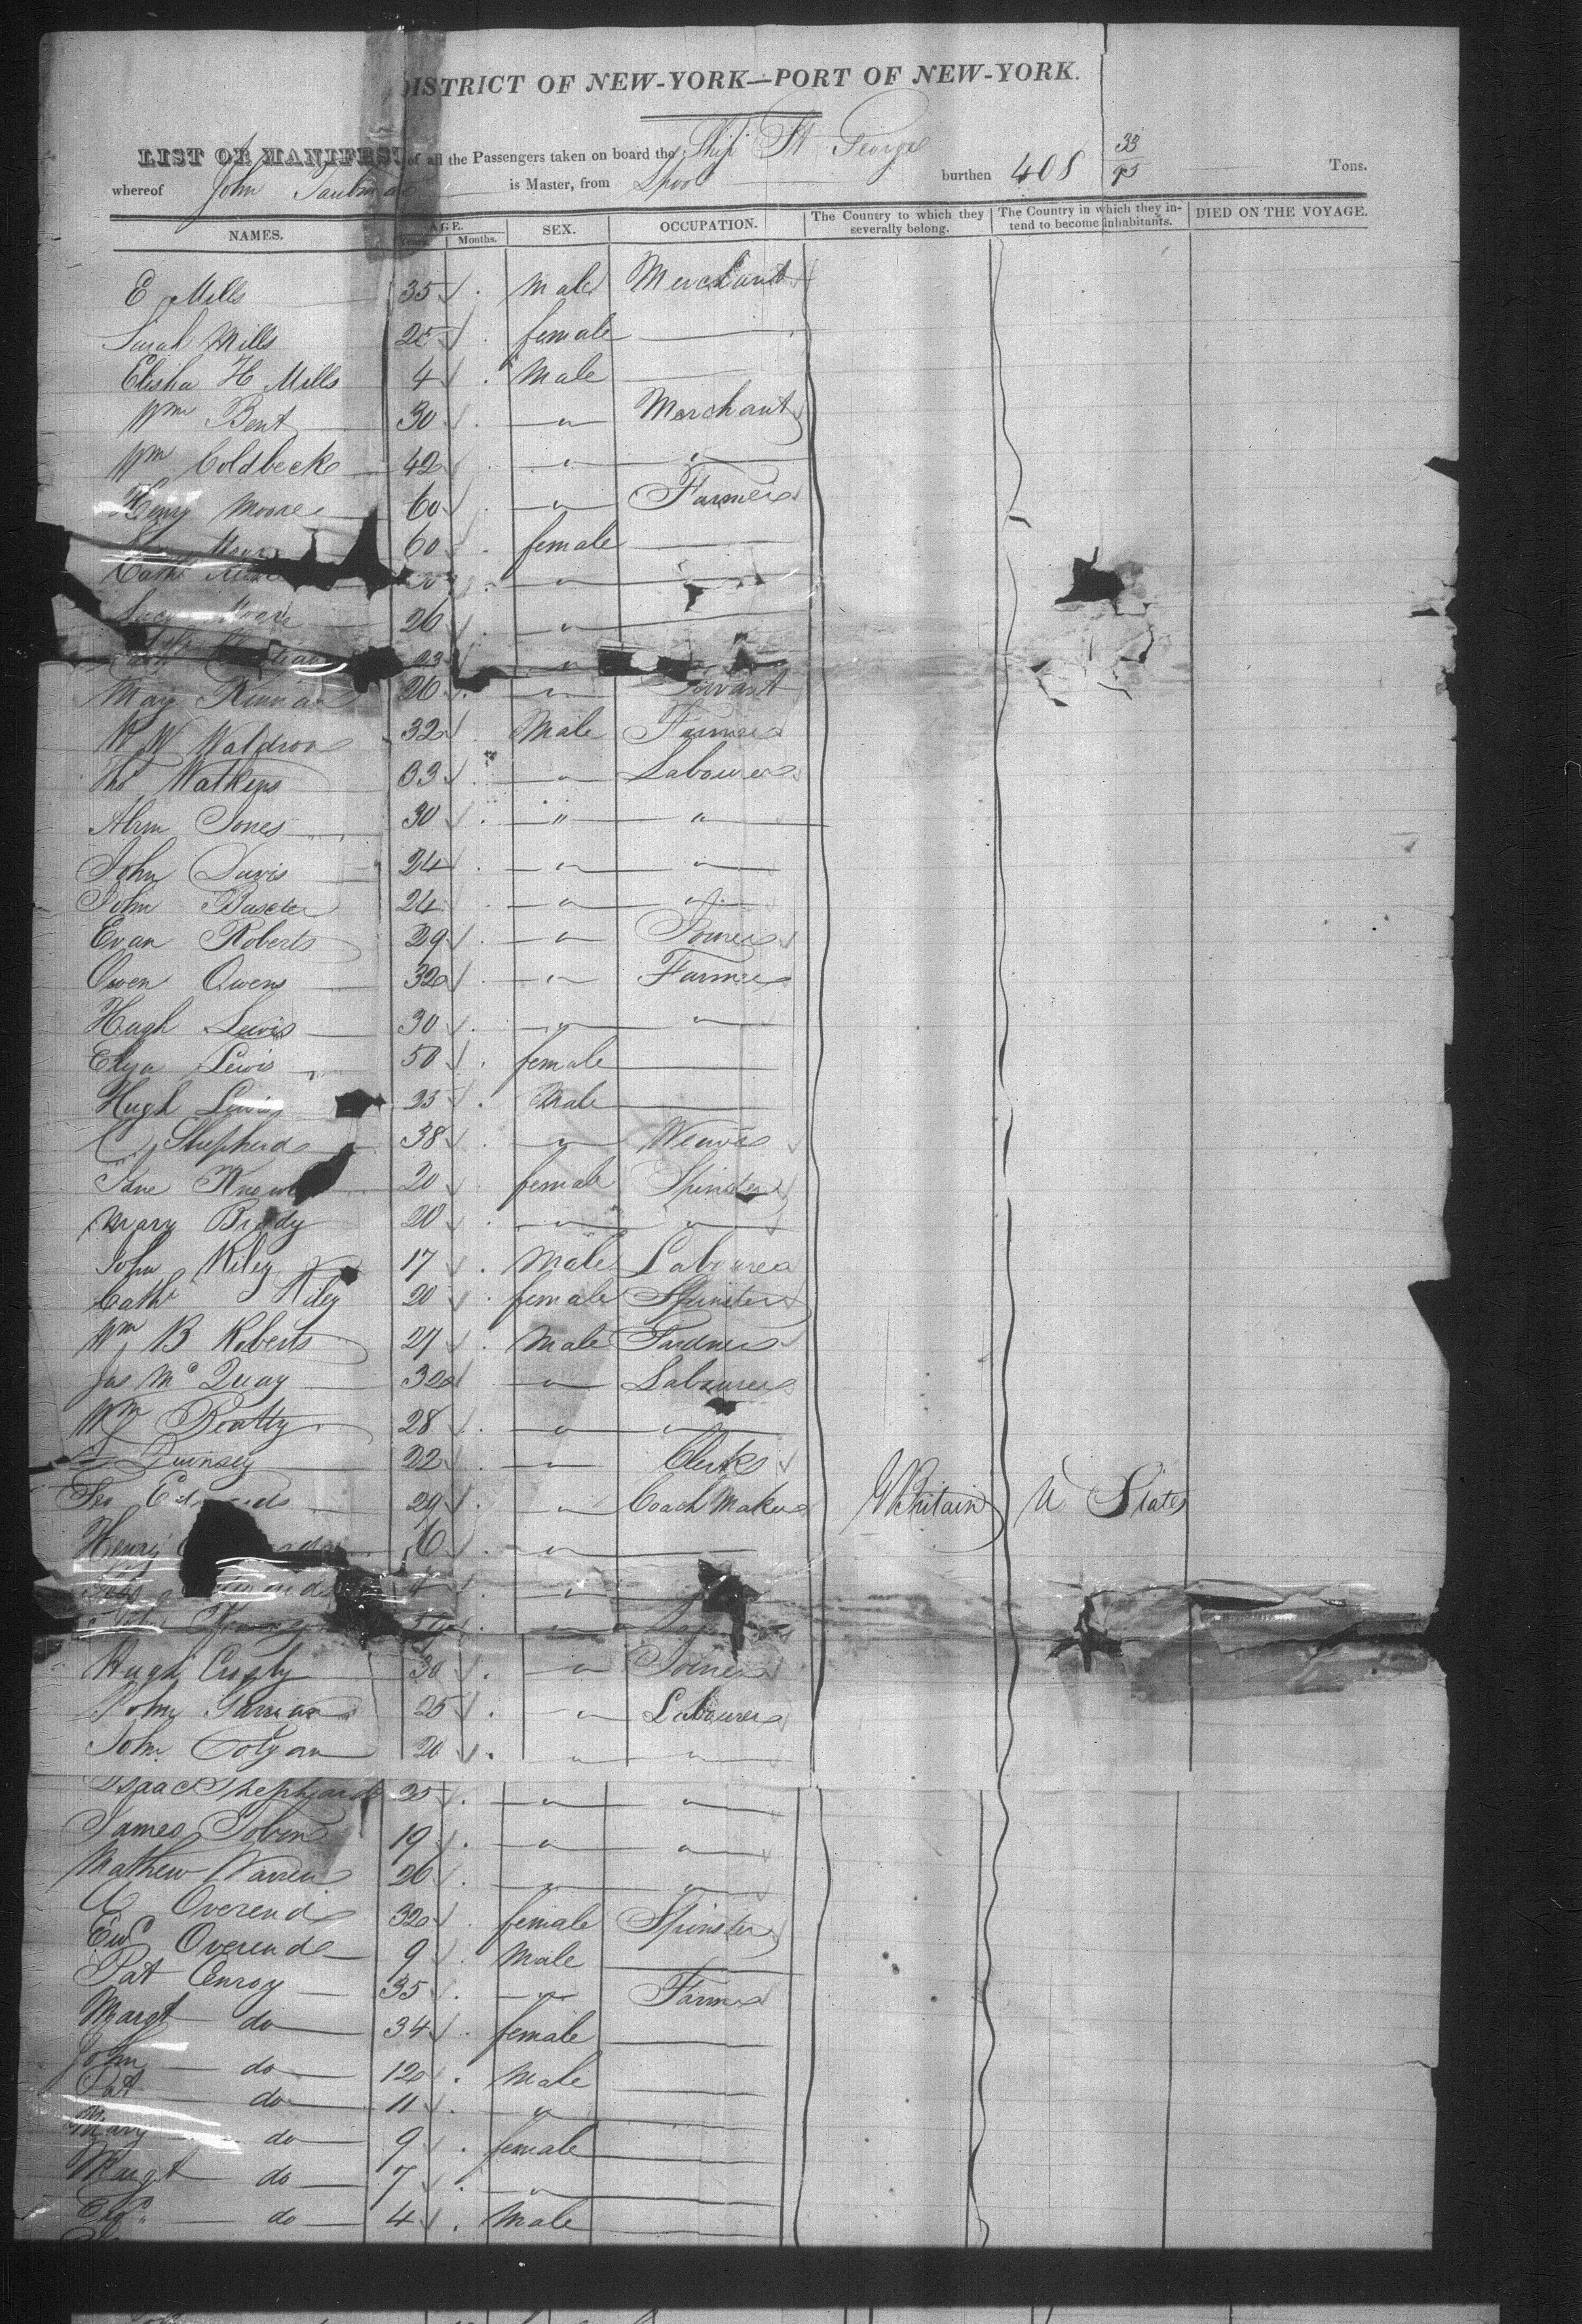 DISTRICT OF NEW-YORK—PORT OF NEW-YORK.
LIST OR MANIFEST of all the Passengers taken on board the Ship St George
whereof John Taubman is Master, from Lpool burthen 408 33/95 Tons.
NAMES. AGE. SEX. OCCUPATION. The Country to which they severally belong. The Country in which they intend to become inhabitants. DIED ON THE VOYAGE.
Years. Months.
E Mills 35 Male Merchant
Sarah Mills 25 female
Elisha H Mills 4 Male
Wm Bent 30 " Merchant
Wm Coldbeck 42 " "
Henry Moore 60 " Farmer
Moore 60 female
Cath "
Lucy Moore 26 "
23 "
May 26 " Servant
W W Waldron 32 Male Farmer
Thos Watkins 33 " Labourer
Abm Jones 30 " "
John Davis 24 " "
John Baxter 24 " "
Evan Roberts 29 " Joiner
Owen Owens 32 " Farmer
Hugh Lewis 30 " "
Eliza Lewis 50 female
Hugh Lewis 25 Male
C Shepherd 38 " Weaver
Jane 20 female Spinster
Mary Brady 20 " "
John Riley 17 Male Labourer
Cath Riley 20 female Spinster
Wm B Roberts 27 Male Gardner
Jas McQuay 32 " Labourer
Wm Beatty 28 " "
Quinsey 22 " Clerk
Geo Edwards 29 " Coach Maker G Britain U States
Henry 6 "
4 "
"
Hugh 30 " Joiner
John 25 " Labourer
John Colgan 20 " "
Isaac Shephard 25 " "
James Tobin 19 " "
Mathew Warren 26 " "
A Overend 32 female Spinster
Edwd Overend 9 Male
Pat Conroy 35 " Farmer
Margt do 34 female
John do 12 Male
Pat do 11 "
Mary do 9 female
Margt do 7 "
do 4 Male